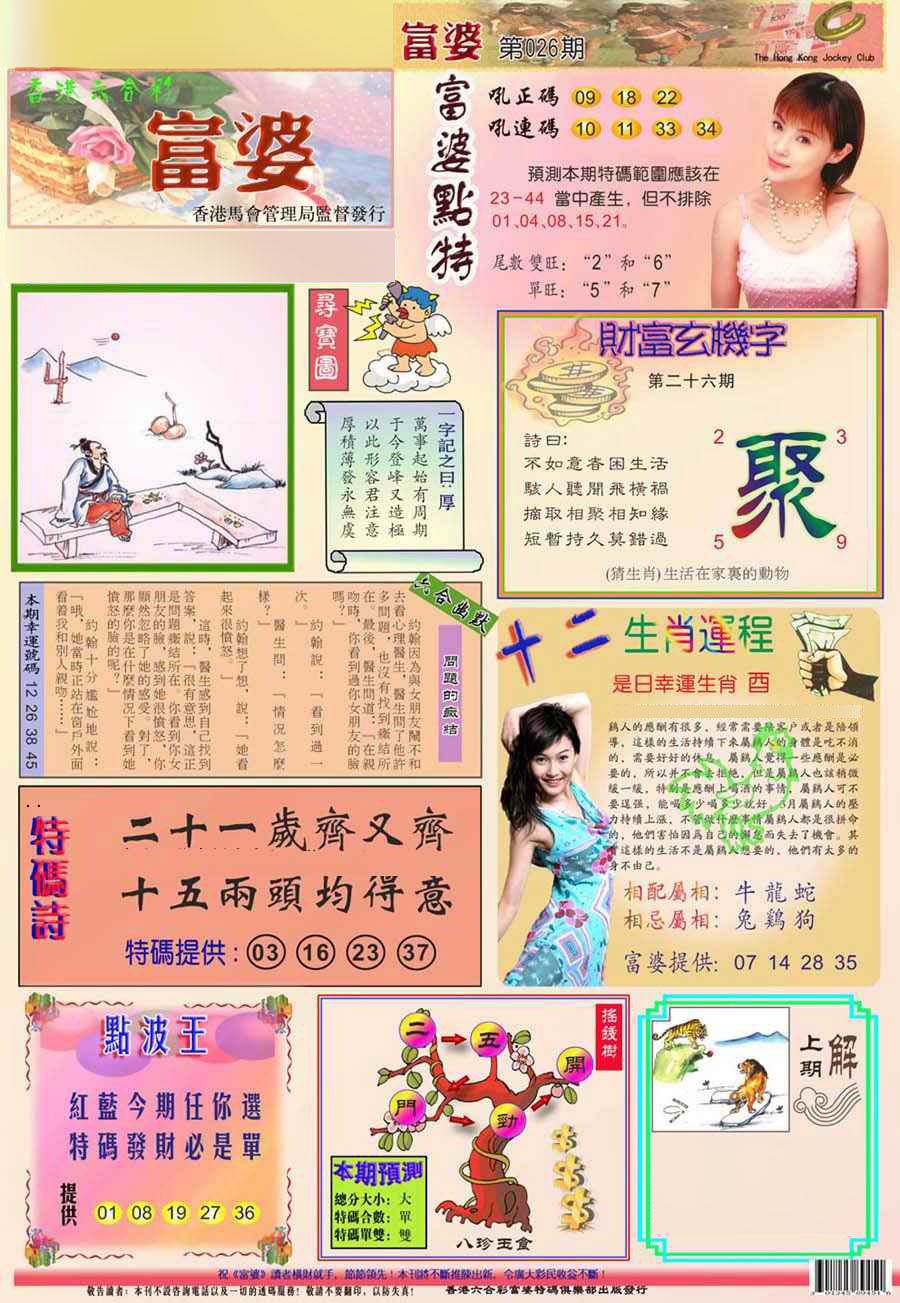 富婆 第026期
The Hong Kong Jockey Club
香港六合彩
富婆
香港馬會管理局監督發行
富婆點特
吼正碼 09 18 22
吼連碼 10 11 33 34
預測本期特碼範圍應該在
23-44 當中產生，但不排除
01、04、08、15、21。
尾數雙旺：“2”和“6”
單旺：“5”和“7”
尋寶圖
一字記之曰：厚
萬事起始有周期
于今登峰又造極
以此形容君注意
厚積薄發永無虞
財富玄機字
第二十六期
詩曰：
不如意者困生活
駭人聽聞飛橫禍
摘取相聚相知緣
短暫持久莫錯過
2 3
聚
5 9
(猜生肖)生活在家裏的動物
六合幽默
問題的癥結
約翰因為與女朋友鬧不和
去看心理醫生，醫生問了他許
多問題，也沒有找到癥結所
在。最後，醫生問道：「在親
吻時，你看到過你女朋友的臉
嗎？」
約翰說：「看到過一
次。」
醫生問：「情况怎麼
樣？」
約翰想了想，說：「她看
起來很憤怒。」
這時，醫生感到自己找到
答案，說：「很有意思，這正
是問題癥結所在。你看到你女
朋友的臉，感到她很憤怒，你
顯然忽略了她的感受。對了，
那麼你是在什麼情况下看到她
憤怒的臉的呢？」
約翰十分尷尬地說：
「哦，她當時正站在窗戶外面
看着我和別人親吻……」
本期幸運號碼 12 26 38 45
十二生肖運程
是日幸運生肖 酉
鷄人的應酬有很多，經常需要陪客户或者是陪領
導，這樣的生活持續下來屬鷄人的身體是吃不消
的，需要好好的休息，屬鷄人覺得一些應酬是必
要的，所以并不會去拒絶，但是屬鷄人也該稍微
緩一緩，特别是應酬上喝酒的事情，屬鷄人可不
要逞强，能喝多少喝多少就好，3月屬鷄人的壓
力持續上漲，不管做什麽事情屬鷄人都是很拼命
的，他們害怕因爲自己的懈怠而失去了機會。其
實這樣的生活不是屬鷄人想要的，他們有太多的
身不由己。
相配屬相：牛 龍 蛇
相忌屬相：兔 鷄 狗
富婆提供：07 14 28 35
特碼詩
二十一歲齊又齊
十五兩頭均得意
特碼提供：03 16 23 37
點波王
紅藍今期任你選
特碼發財必是單
提供 01 08 19 27 36
搖錢樹
二 五
開
門 勁
本期預測
總分大小：大
特碼合數：單
特碼單雙：雙
八珍玉食
上期解
祝《富婆》讀者橫財就手，節節領先！本刊將不斷推陳出新，令廣大彩民收益不斷！
敬告讀者：本刊不設咨詢電話以及一切的透碼服務！敬請不要翻印，以防失真！ 香港六合彩富婆特碼俱樂部出版發行